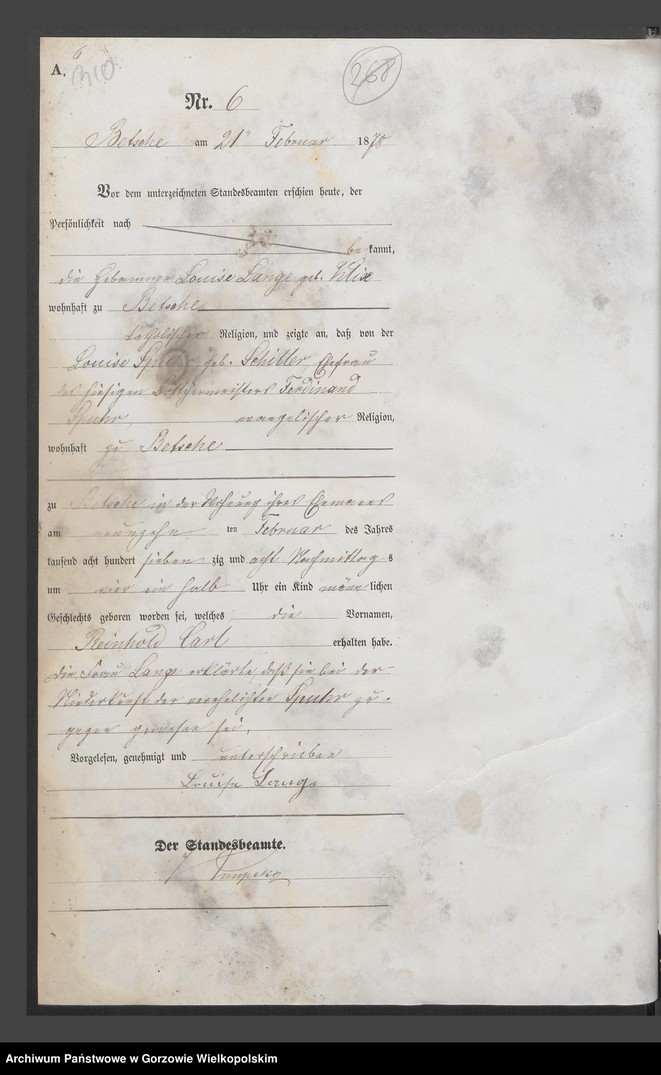 6
A.
310
268
Nr. 6
Betsche am 21" Februar 1878
Vor dem unterzeichneten Standesbeamten erschien heute, der
Persönlichkeit nach
be kannt,
die Hebamme Louise Lange geb. Klix
wohnhaft zu Betsche
katholischer Religion, und zeigte an, daß von der
Louise Spuhr geb. Schiller, Ehefrau
des hiesigen Böttchermeisters Ferdinand
Spuhr, evangelischer Religion,
wohnhaft zu Betsche
zu Betsche in der Wohnung ihres Ehemannes
am neunzehn ten Februar des Jahres
tausend acht hundert sieben zig und acht Nachmittag s
um vier ein halb Uhr ein Kind männ lichen
Geschlechts geboren worden sei, welches die Vornamen,
Reinhold Carl erhalten habe.
Die Frau Lange erklärte, daß sie bei der
Niederkunft der verehelichten Spuhr zu-
gegen gewesen sei.
Vorgelesen, genehmigt und unterschrieben
Louise Lange
Der Standesbeamte.
Archiwum Państwowe w Gorzowie Wielkopolskim